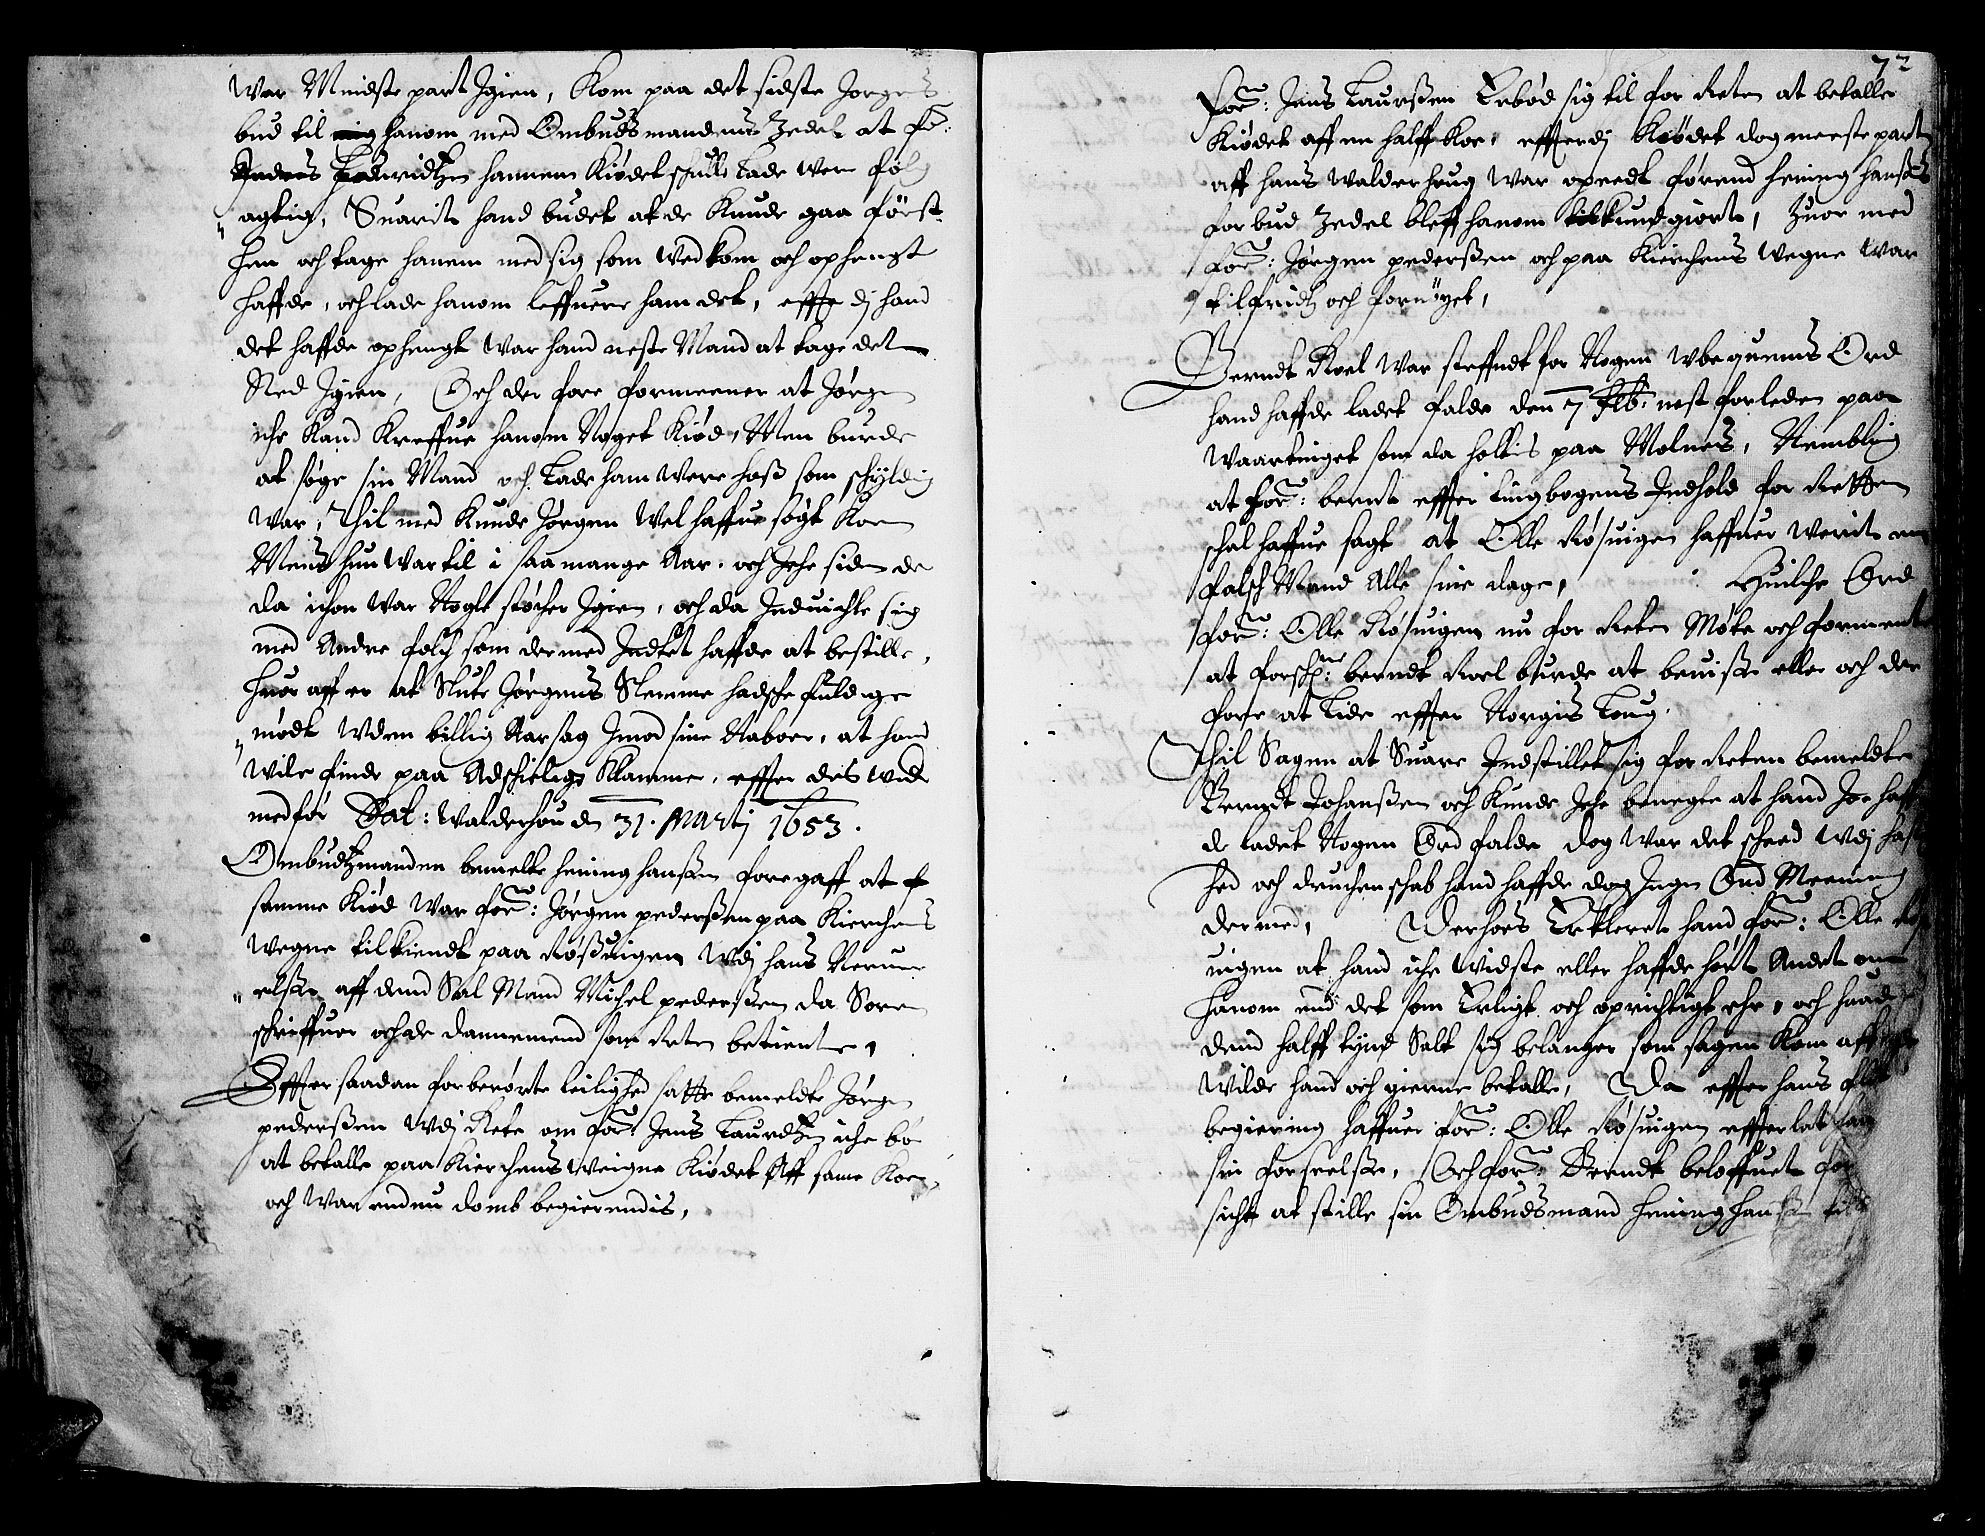 War Mindste part Igien, Kom paa det sidste Jørgens
bud til hanom med Ombudsmandens Zedel at for:
hannem Kiødet skulle lade were føl
agtig, Suarit hand budet at de Kunde gaa først
hen och tage hanem med sig som wed kom och ophengt
haffde, och lade hanom leffuere ham det, effter dj hand
det haffde ophengt war hand neste Mand at tage det
Ned Igien, Och der fore formeener at Jørgen
iche Kand Kreffue hanom Noget Kiød, Men burde
at søge sin Mand och lade ham were løß som schyldig
war, Thil med Kunde Jørgen Wel haffue søgt Koen
Mens hun War til i saa mange Aar, och Iche siden de
da ichon War Nogle støcher Igien, och da Induichle sig
med Andre folch som der med Indtet haffde at bestille,
huor aff er at slute Jørgens Slemme hadsche fuldige
mødt Wden billig Aarsag Imod sine Naboer, at hand
Wile finde paa Adschielige Klamme, effter des wide
medfør Dat: Walderhou den 31. Martj 1653.
Ombudtzmanden bemelte hening hanßen foregaff at
samme Kiød War for: Jørgen pederßen paa Kierchens
Wegne tilkiendt paa Røßuigen Wdj hans Neruer
elße aff dend Sal Mand Michel pederßen da Soren
schriffuer och de dannemend som Reten betiente,
Effter saadan forberørte leilighed satte bemeldte Jørgen
pederßen Wdj Rete om for: Jens Laurdtzen iche bør
at betalle paa Kierchens Weigne Kiødet Aff same Koe,
och War endnu domb begierendis,
72
For: Jens Laurßen Erbød sig til for Reten at betalle
Kiødet aff en halff Koe, effterdj Kiødet dog meeste part
aff hans Walderhoug War opeedt førend hening hanßes
forbud Zedel bleff hanom kundgiort, huor med
for: Jørgen pederßen och paa Kierchens Wegne War
tilfridtz och fornøyet,
Berndt Roel War steffndt for Nogen Wbequems Ord
hand haffde ladet falde den 7 feb: nest forleden paa
Waartinget som da holtis paa Molnes, Nemblig
at for: bernt effter tingbogens Indhold for Retten
schal haffue sagt at Olle Røsuigen haffuer Werit en
falsch Mand Alle sine dage, Huilche Ord
for: Olle Røsuigen nu for Reten Møte och forment
at forsch: berndt Roel burde at beuiße eller och der
fore at lide effter Norgis Loug.
Thil Sagen at Suare Indstillet sig for Reten bemeldte
Berndt Johanßen och Kunde Iche benegte at hand Ioe haff
de ladet Nogen Ord falde dog War det scheed Wdj hast
hed och druchenschab hand haffde dog Ingen Ond Meening
der med, Derhoes Erklerte hand for: Olle Røs
uigen at hand iche Widste eller haffde hørt Andet om
hanom end det som Erligt och oprichtigt ehr, och huad
dend halff tynd Salt sig belanger som sagen Kom aff
Wilde hand och gierne betalle, Da effter hans flit
begiering haffuer for: Olle Røsuigen effterlat ham
sin forseelße, Och for: Berndt beloffuet for
sicht at stille sin Ombudsmand hening hanßen tilf